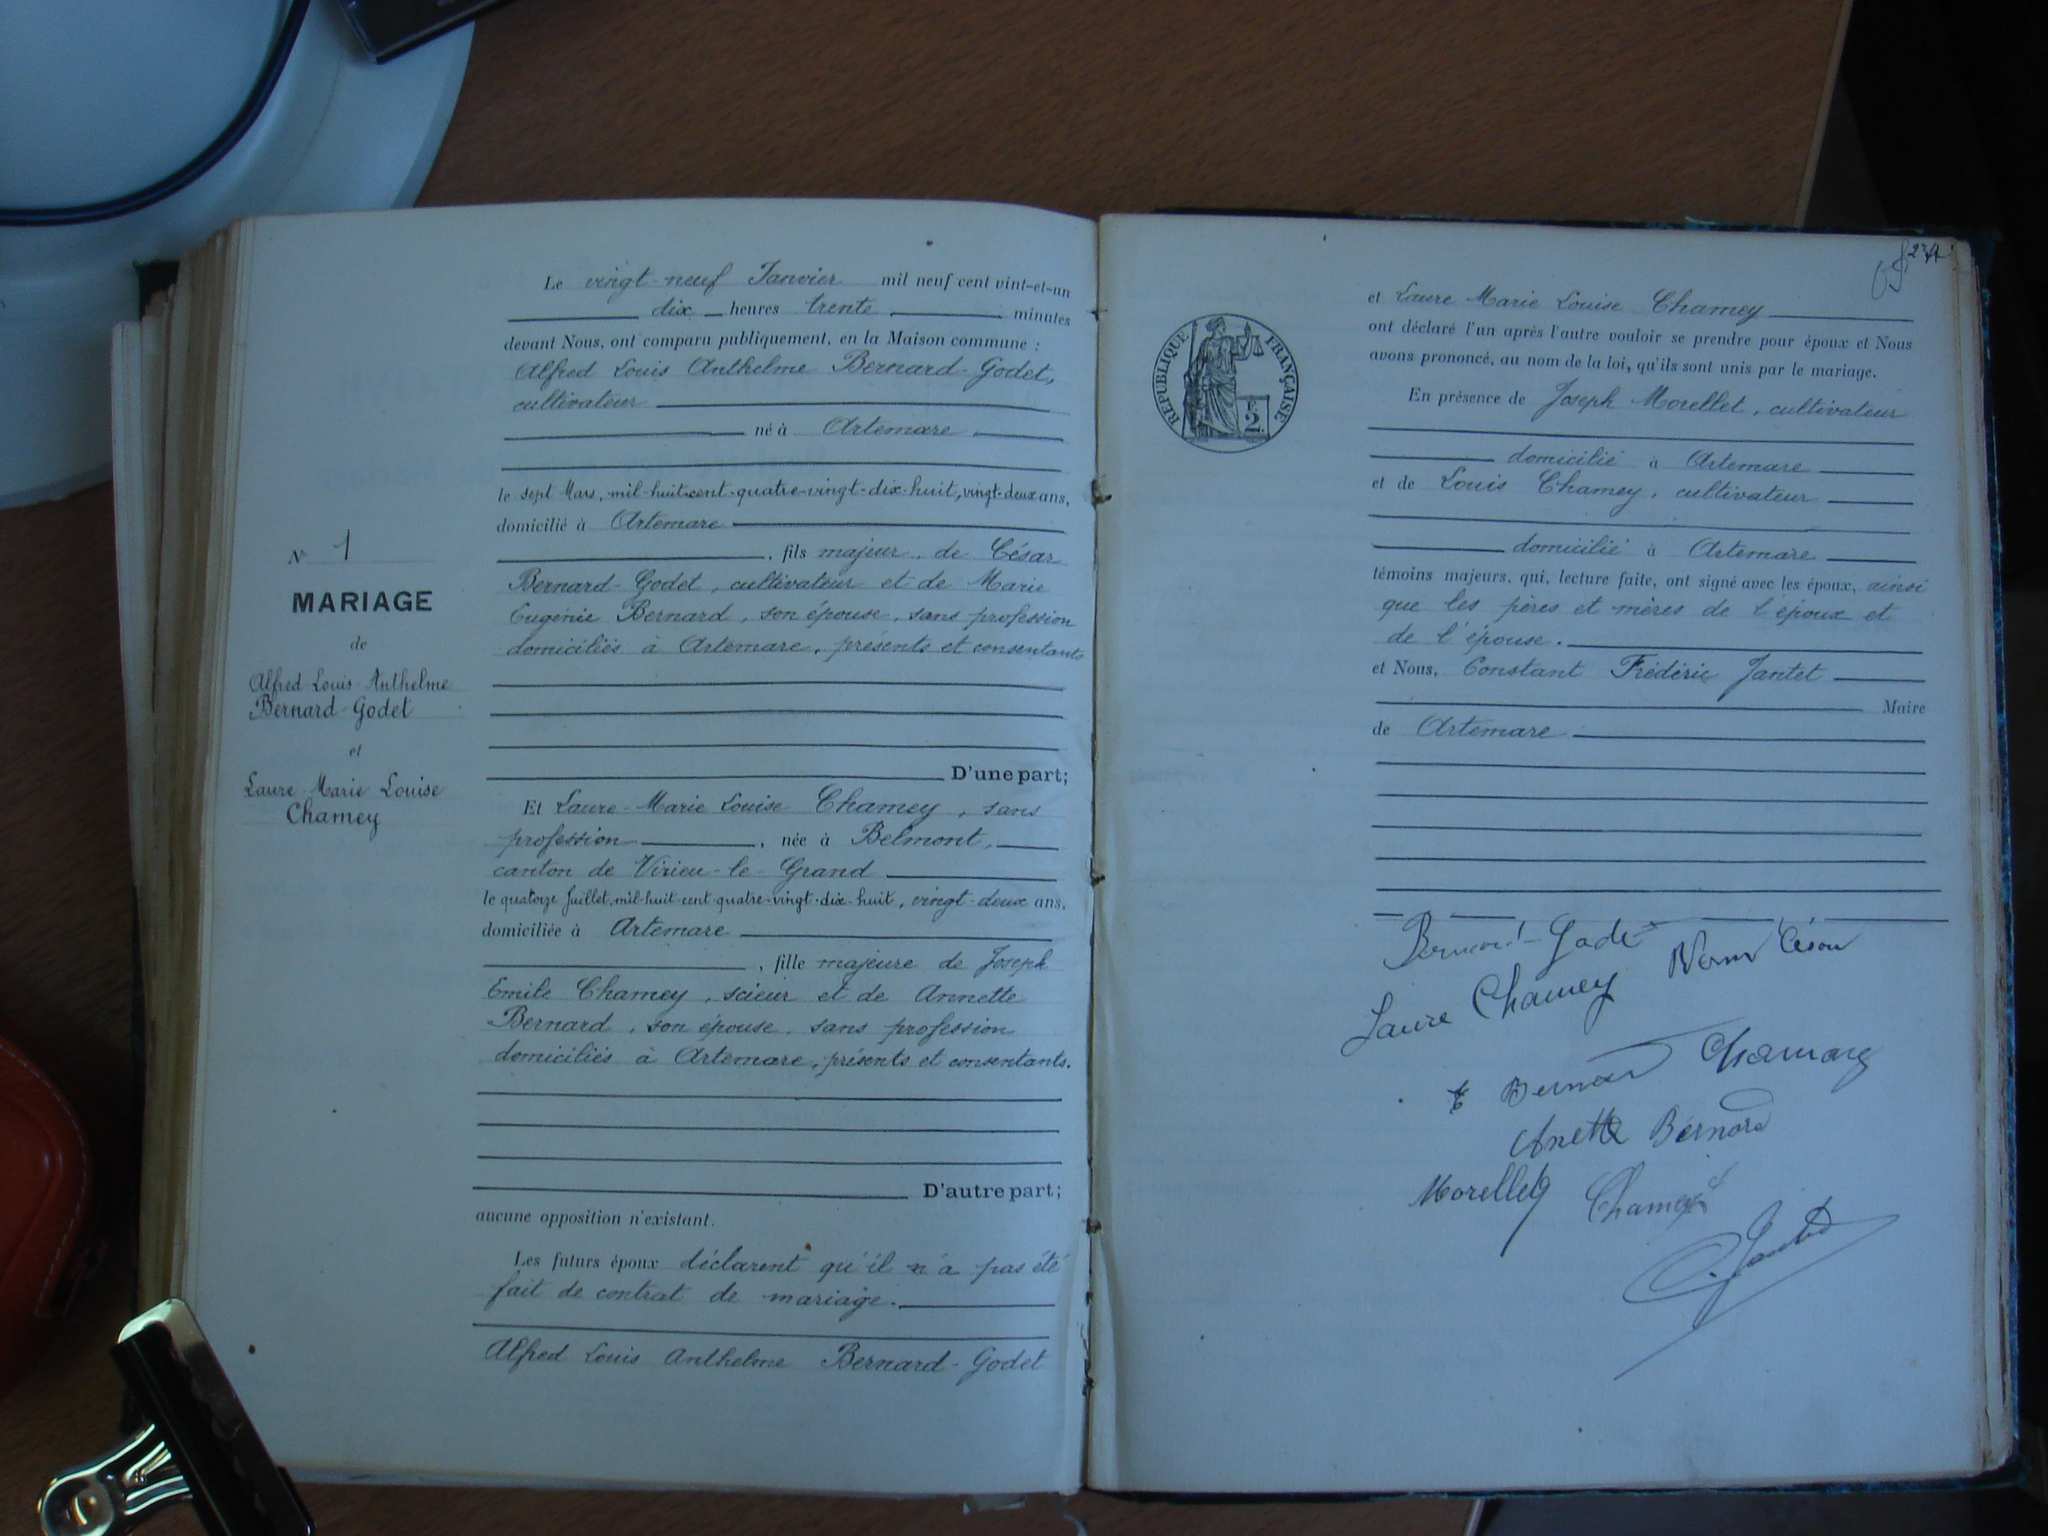 N° 1
MARIAGE
de
Alfred Louis Anthelme
Bernard-Godet
et
Laure Marie Louise
Chamey
Le vingt-neuf Janvier mil neuf cent vint-et-un
dix heures trente minutes
devant Nous, ont comparu publiquement, en la Maison commune :
Alfred Louis Anthelme Bernard-Godet,
cultivateur
né à Artemare
le sept Mars, mil-huit-cent-quatre-vingt-dix-huit, vingt-deux ans,
domicilié à Artemare
, fils majeur, de César
Bernard-Godet, cultivateur et de Marie
Eugénie Bernard, son épouse, sans profession
domiciliés à Artemare, présents et consentants
D'une part;
Et Laure-Marie Louise Chamey, sans
profession, née à Belmont,
canton de Virieu-le-Grand
le quatorze Juillet, mil-huit-cent quatre-vingt-dix-huit, vingt-deux ans,
domiciliée à Artemare
, fille majeure de Joseph
Emile Chamey, scieur et de Annette
Bernard, son épouse, sans profession
domiciliés à Artemare, présents et consentants.
D'autre part;
aucune opposition n'existant.
Les futurs époux déclarent qu'il n'a pas été
fait de contrat de mariage.
Alfred Louis Anthelme Bernard-Godet
RÉPUBLIQUE FRANÇAISE
2F
et Laure Marie Louise Chamey
ont déclaré l'un après l'autre vouloir se prendre pour époux et Nous
avons prononcé, au nom de la loi, qu'ils sont unis par le mariage.
En présence de Joseph Morellet, cultivateur
domicilié à Artemare
et de Louis Chamey, cultivateur
domicilié à Artemare
témoins majeurs, qui, lecture faite, ont signé avec les époux, ainsi
que les pères et mères de l'époux et
de l'épouse.
et Nous, Constant Frédéric Jantet
Maire
de Artemare
Laure Chamey
Bernard Chamay
Anette Bernard
Morellet Chamey
C. Jantet